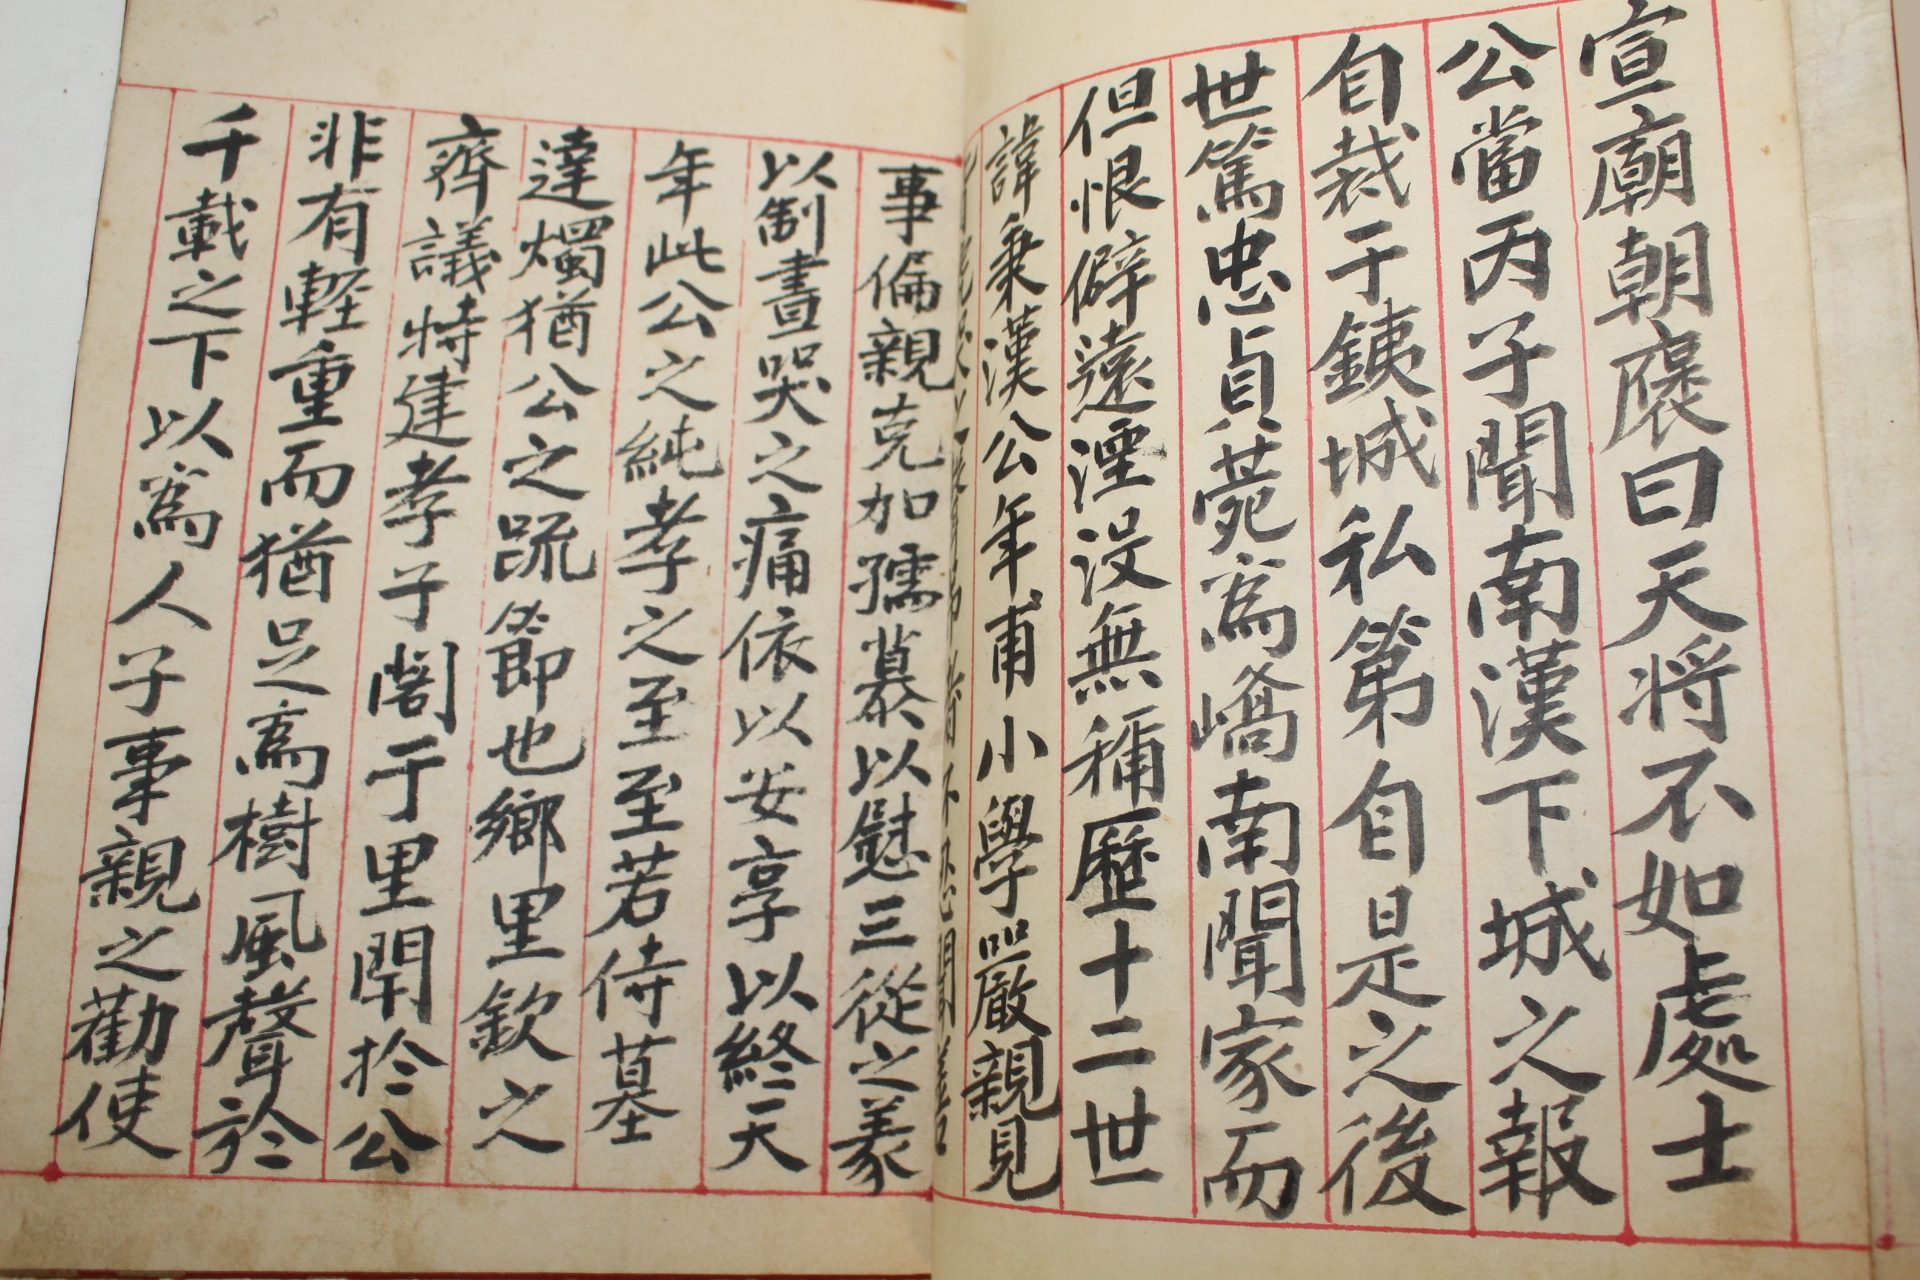 宣廟朝襃曰天將不如處士
公當丙子聞南漢下城之報
自裁于銕城私第自是之後
世篤忠貞菀爲嶠南聞家而
但恨僻遠湮沒無稱歷十二世
諱秉漢公年甫小學嚴親見
事偏親克加孺慕以慰三從之義
以制晝哭之痛依以安享以終天
年此公之純孝之至至若侍墓
達燭猶公之䟽節也鄉里欽之
齊議特建孝子閣于里閈於公
非有軽重而猶足爲樹風聲於
千載之下以爲人子事親之勸使